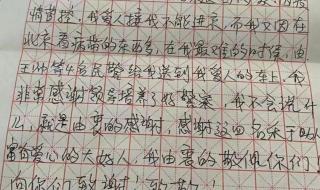 情直接,我爱人接我不能进来,而我又因在
北京看病带的东西多,在我最难的时候,由
王帅等4名民警给我送到我爱人的车上,我
非常感谢领导培养了好警察,我不会说什
么,就是由衷的感谢,感谢这四名乐于助人
富有爱心的大好人,我由衷的敬佩你们!
向你们致谢!致敬!